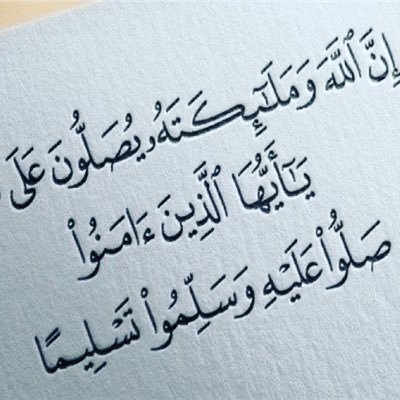 إِنَّ ٱللَّهَ وَمَلَٰٓئِكَتَهُۥ يُصَلُّونَ عَلَى
يَٰٓأَيُّهَا ٱلَّذِينَ ءَامَنُوا۟
صَلُّوا۟ عَلَيْهِ وَسَلِّمُوا۟ تَسْلِيمًا